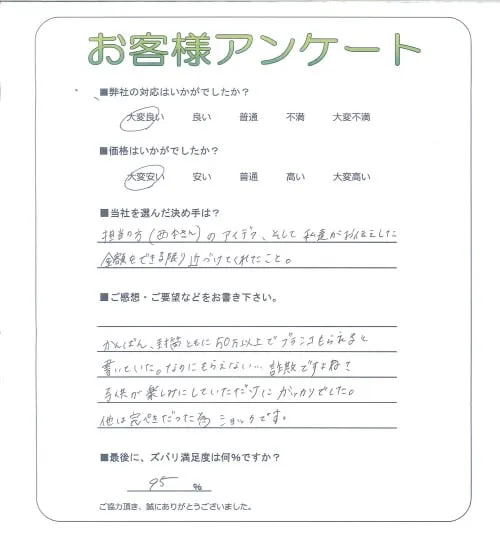 お客様アンケート
■弊社の対応はいかがでしたか？
大変良い 良い 普通 不満 大変不満
■価格はいかがでしたか？
大変安い 安い 普通 高い 大変高い
■当社を選んだ決め手は？
担当の方(西本さん)のアイデア、そして私達がお伝えした
金額をできる限り近づけてくれたこと。
■ご感想・ご要望などをお書き下さい。
かんばん、封筒ともに50万以上でブランコもらえると
書いていた。なのにもらえない…詐欺ですよね？
子供が楽しみにしていただけにガッカリでした。
他は完ぺきだった為ショックです。
■最後に、ズバリ満足度は何％ですか？
95 ％
ご協力頂き、誠にありがとうございました。